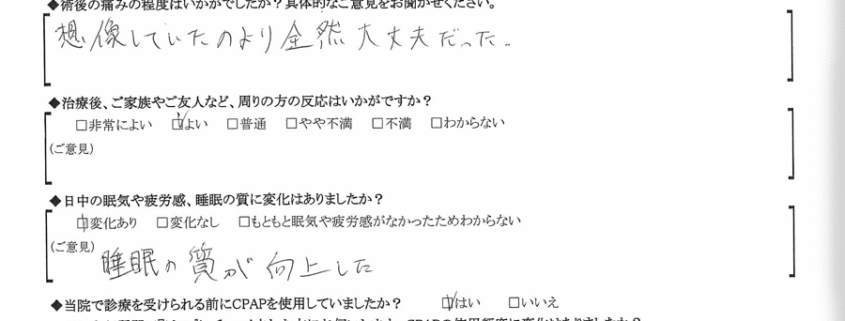 ◆術後の痛みの程度はいかがでしたか？具体的なご意見をお聞かせください。
想像していたのより全然大丈夫だった。
◆治療後、ご家族やご友人など、周りの方の反応はいかがですか？
□非常によい ☑よい □普通 □やや不満 □不満 □わからない
(ご意見)
◆日中の眠気や疲労感、睡眠の質に変化はありましたか？
☑変化あり □変化なし □もともと眠気や疲労感がなかったためわからない
(ご意見)
睡眠の質が向上した
◆当院で診療を受けられる前にCPAPを使用していましたか？ ☑はい □いいえ